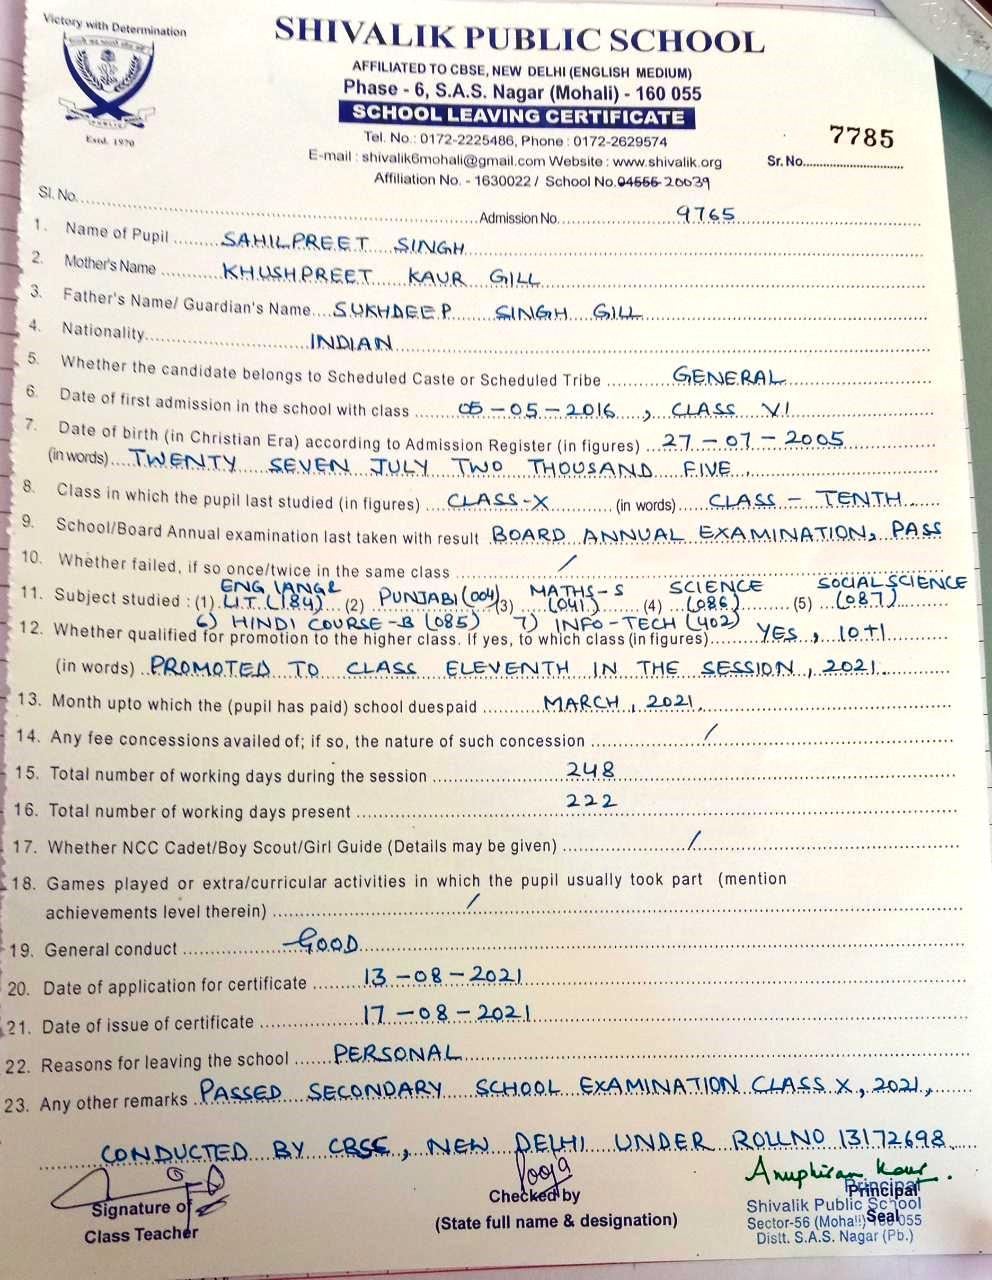 Victory with Determination
SHIVALIK PUBLIC SCHOOL
AFFILIATED TO CBSE, NEW DELHI (ENGLISH MEDIUM)
Phase - 6, S.A.S. Nagar (Mohali) - 160 055
SCHOOL LEAVING CERTIFICATE
Estd. 1970
Tel. No.: 0172-2225486, Phone : 0172-2629574
7785
E-mail : shivalik6mohali@gmail.com Website : www.shivalik.org
Sr. No.
Affiliation No. - 1630022 / School No. 04555 20039
Sl. No. Admission No. 9765
1. Name of Pupil SAHILPREET SINGH
2. Mother's Name KHUSHPREET KAUR GILL
3. Father's Name/ Guardian's Name SUKHDEEP SINGH GILL
4. Nationality INDIAN
5. Whether the candidate belongs to Scheduled Caste or Scheduled Tribe GENERAL
6. Date of first admission in the school with class 05-05-2016, CLASS VI
7. Date of birth (in Christian Era) according to Admission Register (in figures) 27-07-2005
(in words) TWENTY SEVEN JULY TWO THOUSAND FIVE.
8. Class in which the pupil last studied (in figures) CLASS-X (in words) CLASS - TENTH
9. School/Board Annual examination last taken with result BOARD ANNUAL EXAMINATION, PASS
10. Whether failed, if so once/twice in the same class /
11. Subject studied : (1) ENG LANG & LIT. (184) (2) PUNJABI (004) (3) MATHS-S (041) (4) SCIENCE (086) (5) SOCIAL SCIENCE (087)
6) HINDI COURSE-B (085) 7) INFO-TECH (402)
12. Whether qualified for promotion to the higher class. If yes, to which class (in figures) YES, 10+1
(in words) PROMOTED TO CLASS ELEVENTH IN THE SESSION, 2021.
13. Month upto which the (pupil has paid) school duespaid MARCH, 2021.
14. Any fee concessions availed of; if so, the nature of such concession /
15. Total number of working days during the session 248
16. Total number of working days present 222
17. Whether NCC Cadet/Boy Scout/Girl Guide (Details may be given) /
18. Games played or extra/curricular activities in which the pupil usually took part (mention
achievements level therein) /
19. General conduct GOOD
20. Date of application for certificate 13-08-2021
21. Date of issue of certificate 17-08-2021
22. Reasons for leaving the school PERSONAL
23. Any other remarks PASSED SECONDARY SCHOOL EXAMINATION CLASS X, 2021,
CONDUCTED BY CBSE, NEW DELHI UNDER ROLLNO 13172698
Pooja
Signature of
Class Teacher
Checked by
(State full name & designation)
Principal
Principal
Shivalik Public School
Seal
Sector-56 (Mohali) 160055
Distt. S.A.S. Nagar (Pb.)